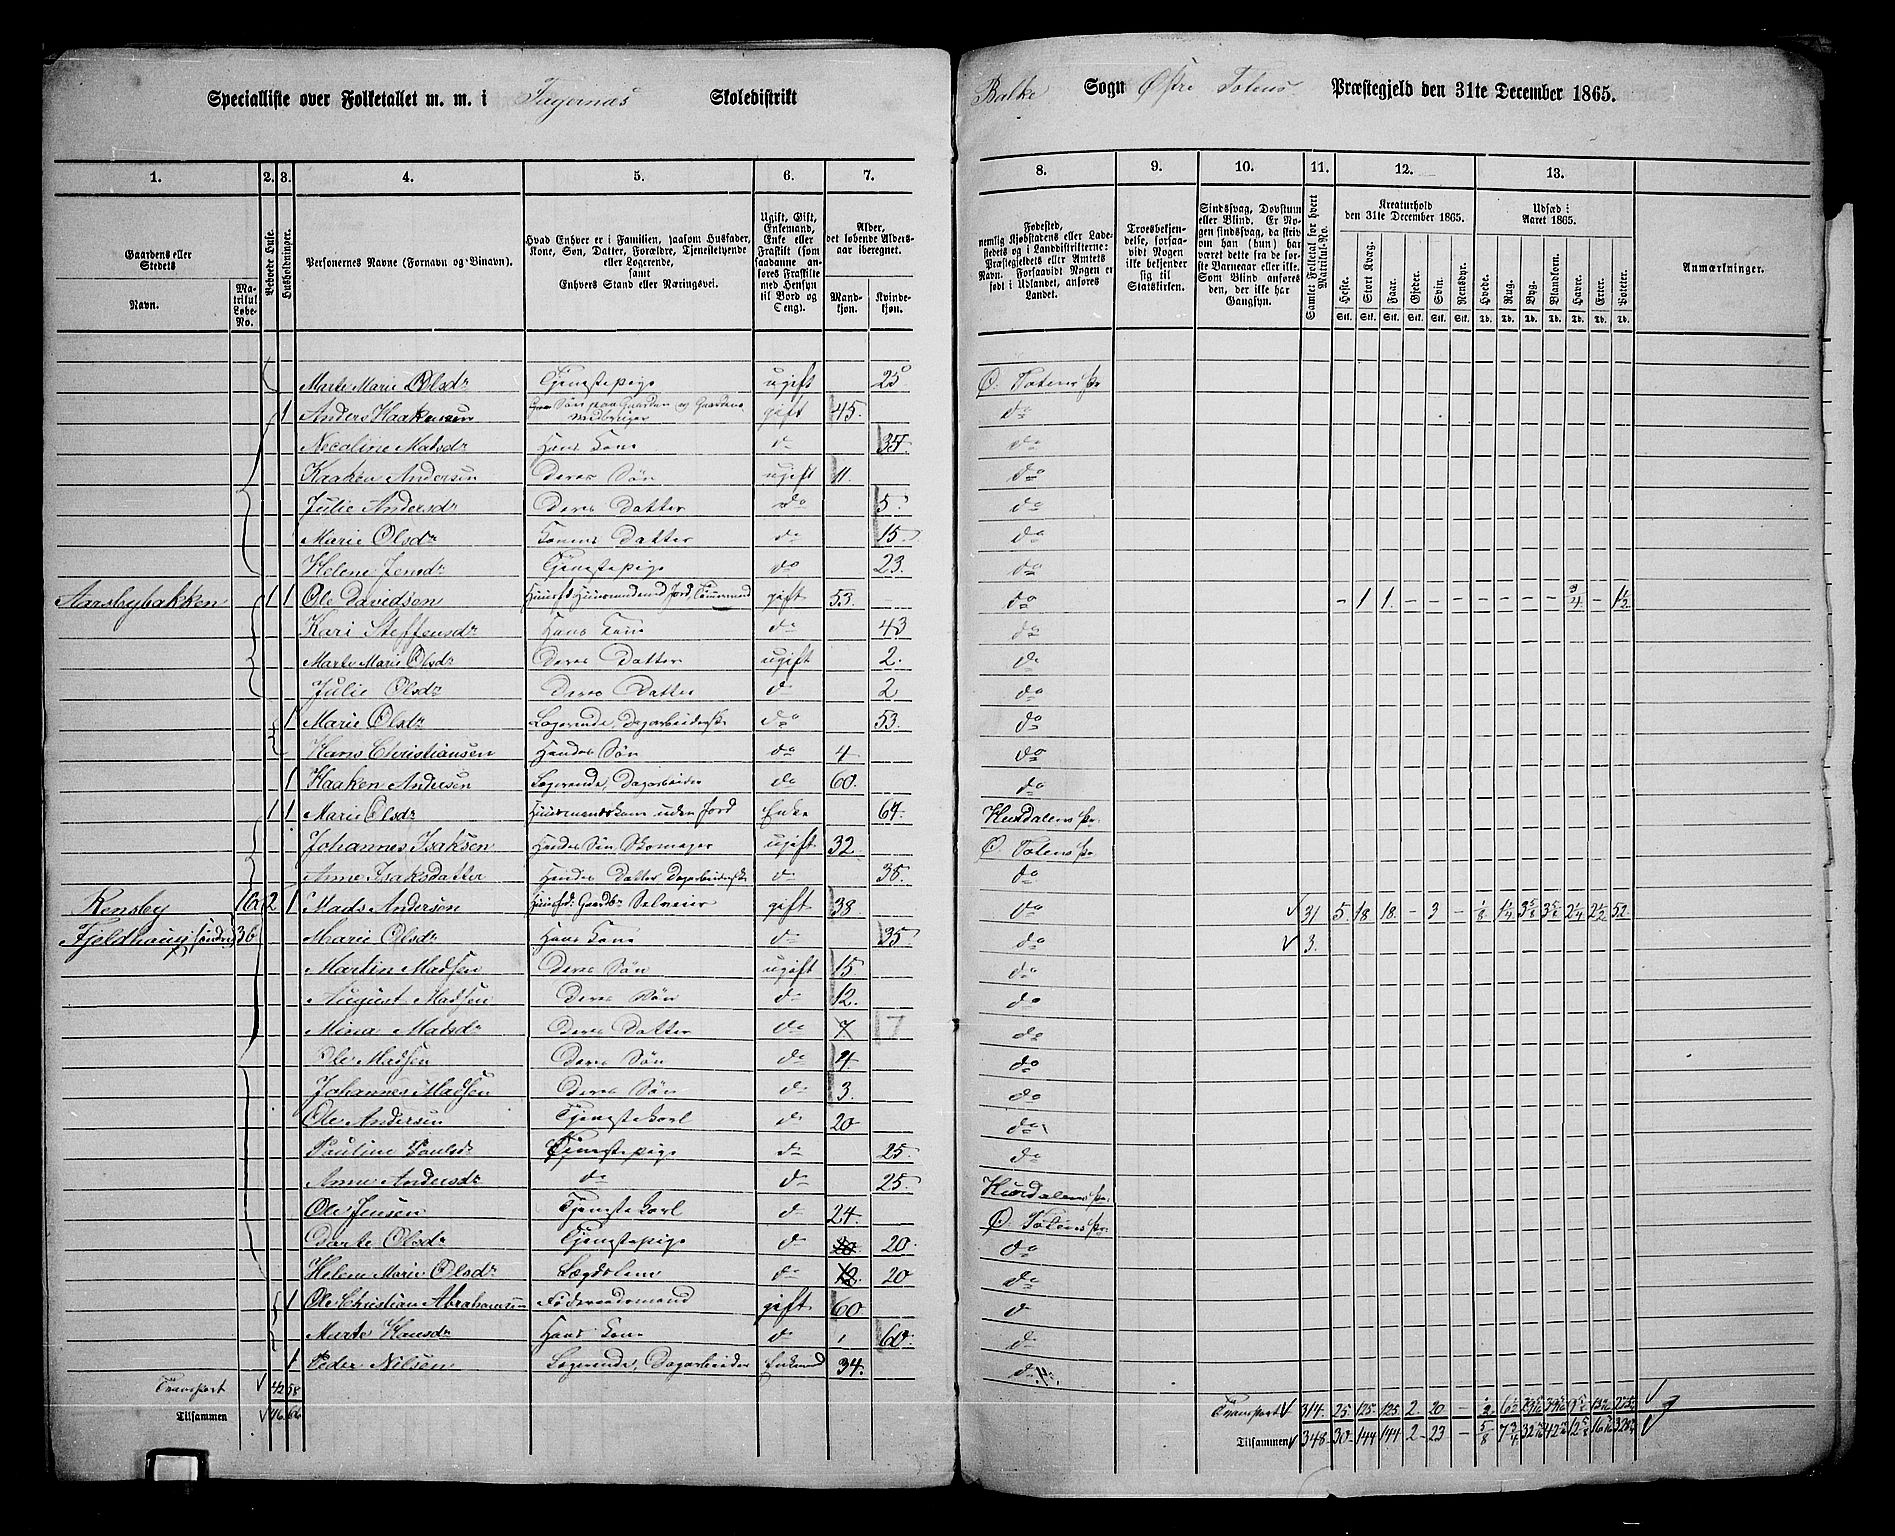 Specialliste over Folketallet m. m. i Fagernæs Skoledistrikt
Balke Sogn Østre Totens Præstegjeld den 31te December 1865.
1. 2. 3. 4. 5. 6. 7.
8. 9. 10. 11. 12. 13.
Gaardens eller Stedets
Navn.
Matrikul Løbe-No.
Beboede Huse.
Husholdninger.
Personernes Navne (Fornavn og Binavn).
Hvad Enhver er i Familien, saasom Husfader, Kone, Søn, Datter, Forældre, Tjenestetyende eller Logerende, samt Enhvers Stand eller Næringsvei.
Ugift, Gift, Enkemand, Enke eller Fraskilt (saadanne anføres Fraskilte med Hensyn til Bord og Seng).
Alder, det løbende Aldersaar iberegnet.
Mandkjøn. Kvindekjøn.
Fødested, nemlig Kjøbstadens eller Ladestedets eller i Landdistrikterne: Præstegjeldets eller Amtets Navn. Forsaavidt Nogen er født i Udlandet, anføres Landet.
Troesbekjendelse, forsaavidt Nogen ikke bekjender sig til Statskirken.
Sindssvag, Døvstum eller Blind. Er Nogen sindssvag, da skriv om han (hun) har været dette fra de første Barneaar eller ikke. Som Blind anføres den, der ikke har Gangsyn.
Samlet Folketal for hvert Matrikul-No.
Kreaturhold den 31te December 1865.
Heste. Stort Kvæg. Faar. Gjeder. Svin. Rensdyr.
Udsæd i Aaret 1865.
Hvede. Rug. Byg. Blandkorn. Havre. Erter. Poteter.
Anmærkninger.
Marte Marie Olsdr Tjenstepige ugift 25 Ø. Totens Pr
1 Anders Haakensen Søn paa Gaarden og Gaardens Medbruger gift 45. do
Necoline Matsdr Hans Kone do do
Haaken Andersen Deres Søn ugift 11. do
Julie Andersdr Deres Datter do 5. do
Marie Olsdr Konens Datter do 15. do
Helene Jensdr Tjenstepige do 23. do
Aarsbybakken 1 1 Ole Davidsen Huusf. Huusmand med Jord, gift 53. do - 1 1. - - - - - - - 3/4 - 1 1/2
Kari Steffensdr Hans Kone do 43 do
Marte Marie Olsdr Deres Datter ugift 2. do
Julie Olsdr Deres Datter do 2 do
1 Marie Olsdr Logerende, Dagarbeiderske do 53. do
Hans Christiansen Hendes Søn do 4 do
1 Haaken Andersen Logerende, Dagarbeider do 60. do
1 1 Marie Olsdr Huusmandskone uden Jord Enke 67. Hurdalens Pr.
Johannes Isaksen Hendes Søn, Skomager ugift 32. Ø. Totens Pr
Anne Isaksdatter Hendes Datter, Dagarbeiderske do 38. do
Rensby 16 2 1 Mads Andersen Huusf. Gaardbr Selveier gift 38 do 31 5. 18 18. - 3 - 1/8 1 1/4 3 5/8 3 5/8 2 1/4 2 1/2 52.
Fjeldhaug søndre 36 Marie Olsdr Hans Kone do 35. do 3.
Martin Madsen Deres Søn ugift 15 do
August Madsen Deres Søn do 12. do
Mina Matsdr Deres Datter do 7 7 do
Ole Madsen Deres Søn do 4 do
Johannes Madsen Deres Søn do 3. do
Ole Andersen Tjenstekarl do 20 do
Pauline Paulsdr Tjenstepige do 25 do
Anne Andersdr do do 25. Hurdalens Pr.
Ole Jensen Tjenstekarl do 24. Ø. Totens Pr
Dorte Olsdr Tjenstepige do 20 20. do
Helene Marie Olsdr Lægdslem do 20 do
1 Ole Christian Abrahamsen Føderaadsmand gift 60 do
Marte Hansdr Hans Kone do 60. do
1 Peder Nilsen Logerende, Dagarbeider Enkemd 34. do
Transport 42 58
Tilsammen 46 66
Transport 314. 25 125. 125. 2 20 - 1/2
Tilsammen 348. 30 144 144 2 - 23 - 5/8 7 3/4